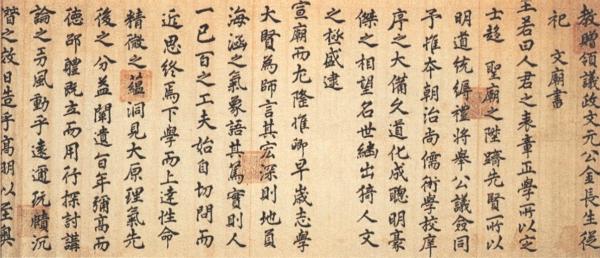 教贈領議政文元公金長生從
祀 文廟書
王若曰人君之表章正學所以定
士趨 聖廟之陞躋先賢所以
明道統縟禮將舉公議僉同
予惟本朝治尚儒術學校庠
序之大備久道化成聰明豪
傑之相望名世繼出猗人文
之極盛逮
宣廟而尤隆惟卿早歲志學
大賢為師言其宏深則地負
海涵之氣象語其篤實則人
一己百之工夫始自切問而
近思終焉下學而上達性命
精微之蘊洞見大原理氣先
後之分益闡遺旨年彌高而
德邵體既立而用行探討講
論之方風動乎遠邇玩賾沉
潛之效日造乎高明以至奧